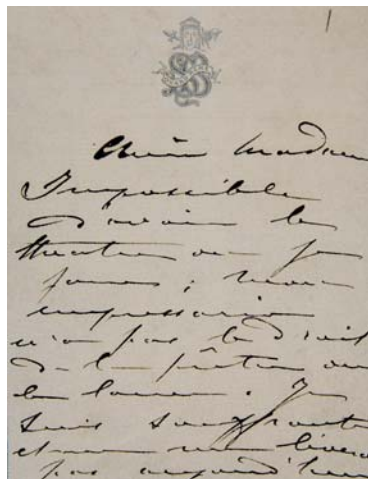 1
Chère Madame
Impossible
d'avoir le
théâtre où je
joue ; mon
impresario
n'a pas le droit
de le prêter ou
de le louer. Je
suis souffrante
et ne me lèverai
pas aujourd'hui